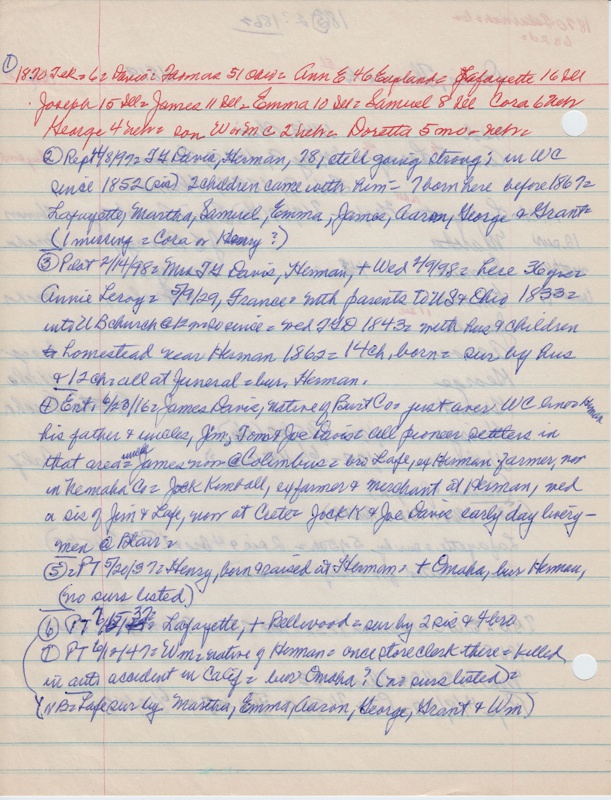 ① 1870 Tek = 6 = Davis = Thomas 51 Ohio = Ann E 46 England = Lafayette 16 Ill
Joseph 15 Ill = James 11 Ill = Emma 10 Ill = Samuel 8 Ill Cora 6 Nebr
George 4 Nebr = son Wm C 2 Nebr = Doretta 5 mo = Nebr =
② Rept 4/8/97 = TJ Davis, Herman, 78, still going strong; in WC
since 1852 (sic) 2 children came with him = 7 born here before 1867 =
Lafayette, Martha, Samuel, Emma, James, Aaron, George & Grant =
(1 missing = Cora or Henry?)
③ Pilot 2/14/98 = Mrs TJ Davis, Herman, + Wed 2/9/98 = here 36 yrs =
Annie Leroy = 5/9/29, France = with parents to US & Ohio 1833 =
into UB church @ 12 = so since = wed TJD 1843 = with hus & children
to homestead near Herman 1862 = 14 ch. born = sur by hus
& 12 ch = all at funeral = bur. Herman.
④ Ent. 6/23/16 = James Davis, native of Burt Co = just over WC line = Herman
his father & uncles, Jim, Tom & Joe Davis = all pioneer settlers in
that area = uncle James now @ Columbus = bro Lafe, ex Herman farmer, now
in Nemaha Co = Jock Kimball, ex farmer & merchant at Herman, wed
a sis of Jim & Lafe, now at Ceeter = Jock K & Joe Davis early day livery-
men @ Blair =
⑤ = PT 5/20/37 = Henry, born & raised at Herman = + Omaha, bur Herman,
(no surs listed)
⑥ PT 37 = Lafayette, + Bellwood = sur by 2 sis & 4 bro
⑦ PT /47 = Wm = native of Herman = once store clerk there = killed
in auto accident in Calif = bur Omaha? (no surs listed) =
(NB = Lafe sur by Martha, Emma, Aaron, George, Grant & Wm)